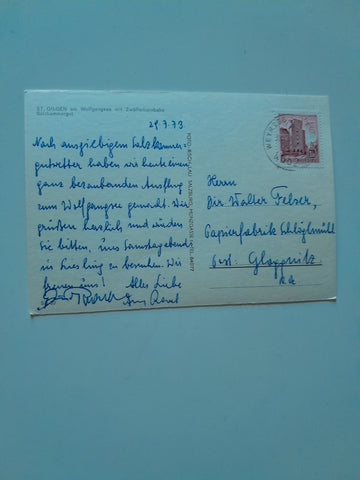 ST. GILGEN am Wolfgangsee mit Zwölferhornbahn
Salzkammergut
29.7.73
Nach ausgiebigem Salzkammer-
gutwetter haben wir heute einen
ganz bezaubernden Ausflug
zum Wolfgangsee gemacht. Wir
grüßen herzlich und würden
Sie bitten, uns Samstagabend
in Liesling zu besuchen. Wir
freuen uns! Alles Liebe
SALZBURG
WEYR
Herrn
Dir. Walter Felser,
Papierfabrik Schlöglmühl
Post: Gloggnitz
N.Ö.